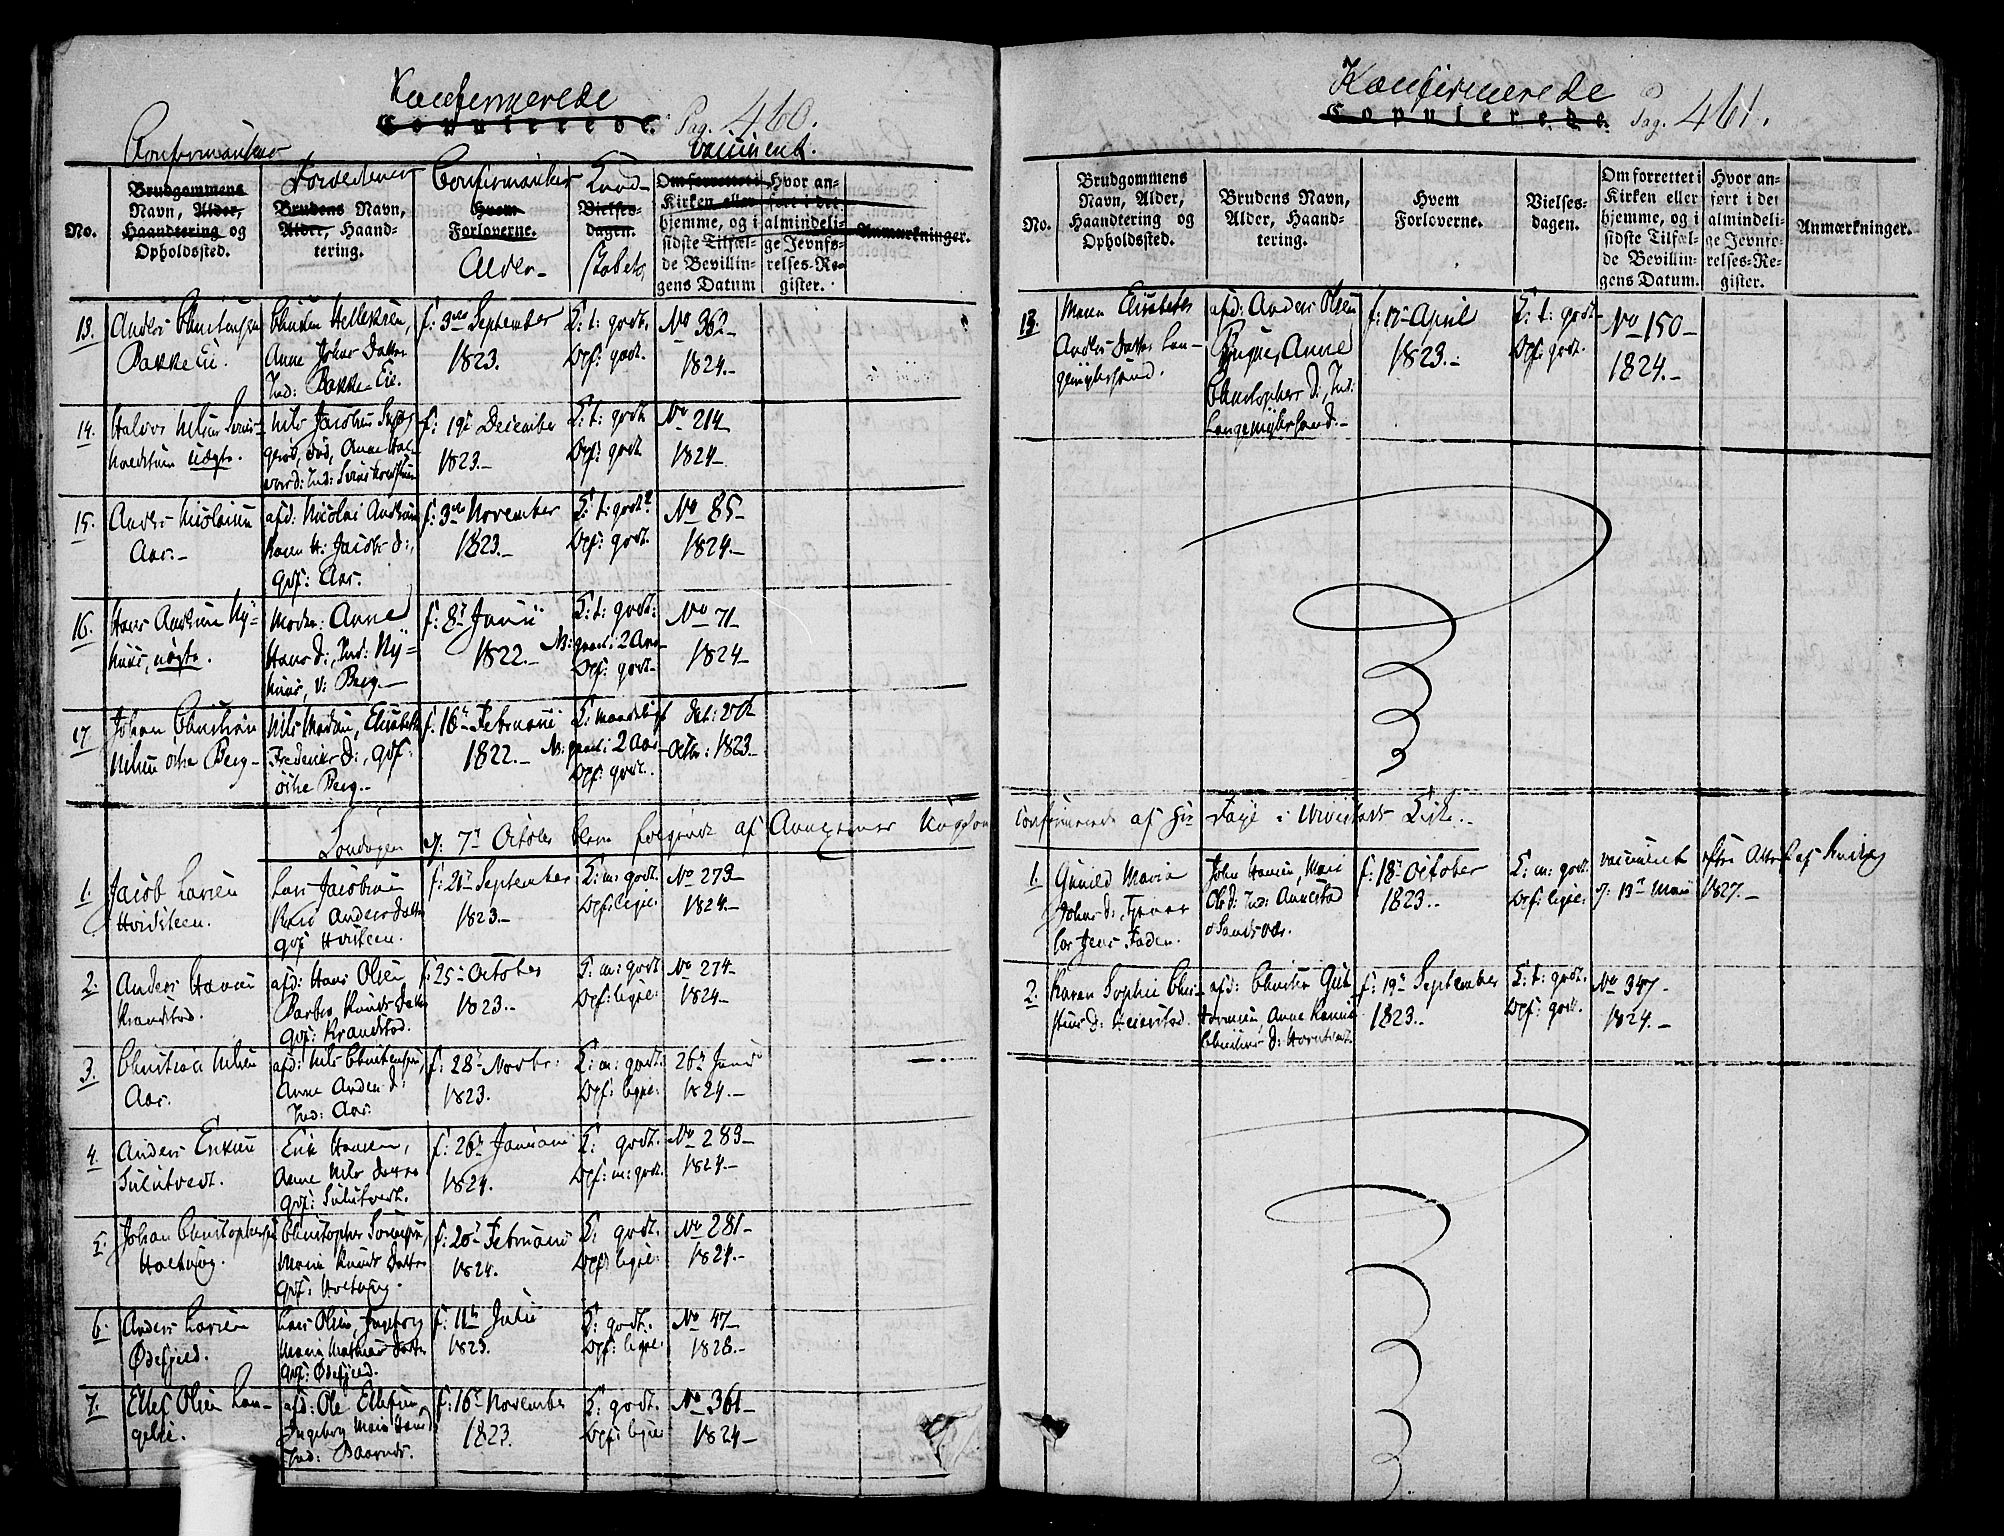 Konfirmerede
Copulerede. Pag. 460.
Confirmanternes
Vaccineret.
No.
Brudgommens
Navn, Alder,
Haandtering og
Opholdssted.
Forældrenes
Brudens Navn,
Alder, Haand-
tering.
Confirmanternes
Hvem
Forloverne.
Alder
Kund-
Vielses-
dagen.
skabets
Om forrettet i
Kirken eller
hjemme, og i
sidste Tilfæl-
de Bevillin-
gens Datum
Hvor an-
ført i det
almindeli-
ge Jevnfø-
relses-Re-
gister.
Anmærkninger.
13.
Anders Christensen
Bakke Eie.
Christen Hellesen,
Anne Johns Datter
Ind: Bakke Eie.
f: 3die September
1823.
K: t: godt.
Opf: godt.
No 362
1824.
14.
Halvor Nilsen
uægte.
Nils Jacobsen
f: 19de December
1823.
K: t: godt
Opf: godt
No 214
1824
15.
Anders Nicolaisen
Aas.
afd: Nicolai Andersen
Karen H: Jacobs D:,
Gdf: Aas.
f: 3die November
1823.
K: t: godt
Opf: godt.
No 85
1824
16.
Hans Andersen Ny-
huus, uægte.
Moder: Anne
Hans D:, Ind: Ny-
huus, v: Berg.
f: 8de Junii
1822.
K: t: godt:
NB: gaaet i 2 Aar
Opf: godt.
No 71
1824
17
Johan Christian
Nilsen østre Berg
Nils Madsen, Elisabeth
Frederics D:, Gdf:
østre Berg.
f: 16de Februarii
1822.
K: maadeligt
NB: gaaet i 2 Aar
Opf: godt.
Dat: 20de
Octbr: 1823.
Søndagen d: 7de October bleve følgende af Annexernes Ungdom
1.
Jacob Larsen
Hvidsteen.
Lars Jacobsen
Anders Datter
Gdf Hvidsteen.
f: 21de September
1823.
K: m: godt.
Opf: ligel:
No 273
1824.
2.
Anders Hansen
Krandstad.
afd: Hans Olsen
Barbro Knuds Datter
Gdf: Krandstad.
f: 25de October
1823.
K: m: godt
Opf: ligel:
No 274
1824.
3.
Christian Nilsen
Aas.
afd: Nils Christensen,
Anne Anders D:
Ind: Aas.
f: 28de Novbr:
1823.
K: m: godt:
Opf: ligel:
26de Junii
1824.
4.
Anders Ericsen
Sulutvedt.
Erik Hansen,
Anne Nils Datter
Gdf: Sulutvedt.
f: 26de Januarii
1824.
K: godt.
Opf: m: godt.
No 289
1824.
5.
Johan Christophersen
Holtung.
Christopher Sørensen,
Maria Knuds Datter
Gdf: Holtung.
f: 20de Februarii
1824.
K: godt.
Opf: ligel:
No 281
1824.
6.
Anders Larsen
Ødefjeld.
Lars Olsen, Ingeborg
Maria Mathias Datter
Gdf: Ødefjeld.
f: 11te Julii
1823.
K: godt.
Opf: ligel:
No 47
1828.
7.
Ellef Olsen Lan-
gelie.
afd: Ole Ellefsen
Ingeborg Marie Hans D:
Ind:
f: 16de November
1823.
K: godt.
Opf: ligel:
No 361
1824
Konfirmerede
Copulerede. Pag. 461.
No.
Brudgommens
Navn, Alder,
Haandtering og
Opholdssted.
Brudens Navn,
Alder, Haand-
tering.
Hvem
Forloverne.
Vielses-
dagen.
Om forrettet i
Kirken eller
hjemme, og i
sidste Tilfæl-
de Bevillin-
gens Datum.
Hvor an-
ført i det
almindeli-
ge Jevnfø-
relses-Re-
gister.
Anmærkninger.
13.
Maren Elisabeth
Anders Datter Lan-
gemyhrsand.
afd: Anders Olsen
Anne
Christophers D:, Ind:
Langemyhrsand.
f: 12te April
1823.
K: t: godt
Opf: godt.
No 150
1824.
confirmerede af Hr Faye i Kirke.
1.
Gunild Maria
Johns D:, tjener
hos Jens Faden.
John Hansen, Mari
Ols D: Ind: Annestad
i Sandsvær.
f: 18de October
1823.
K: m: godt.
Opf: ligel:
vaccineret efter Attest af
d: 13de Martii 1827.
2.
Karen Sophie Chri-
stens D: Heierstad.
afd: Christen Gut-
tormsen Anne Karine
Christens D:
f: 19de September
1823.
K: t: godt.
Opf: godt.
No 347
1824.